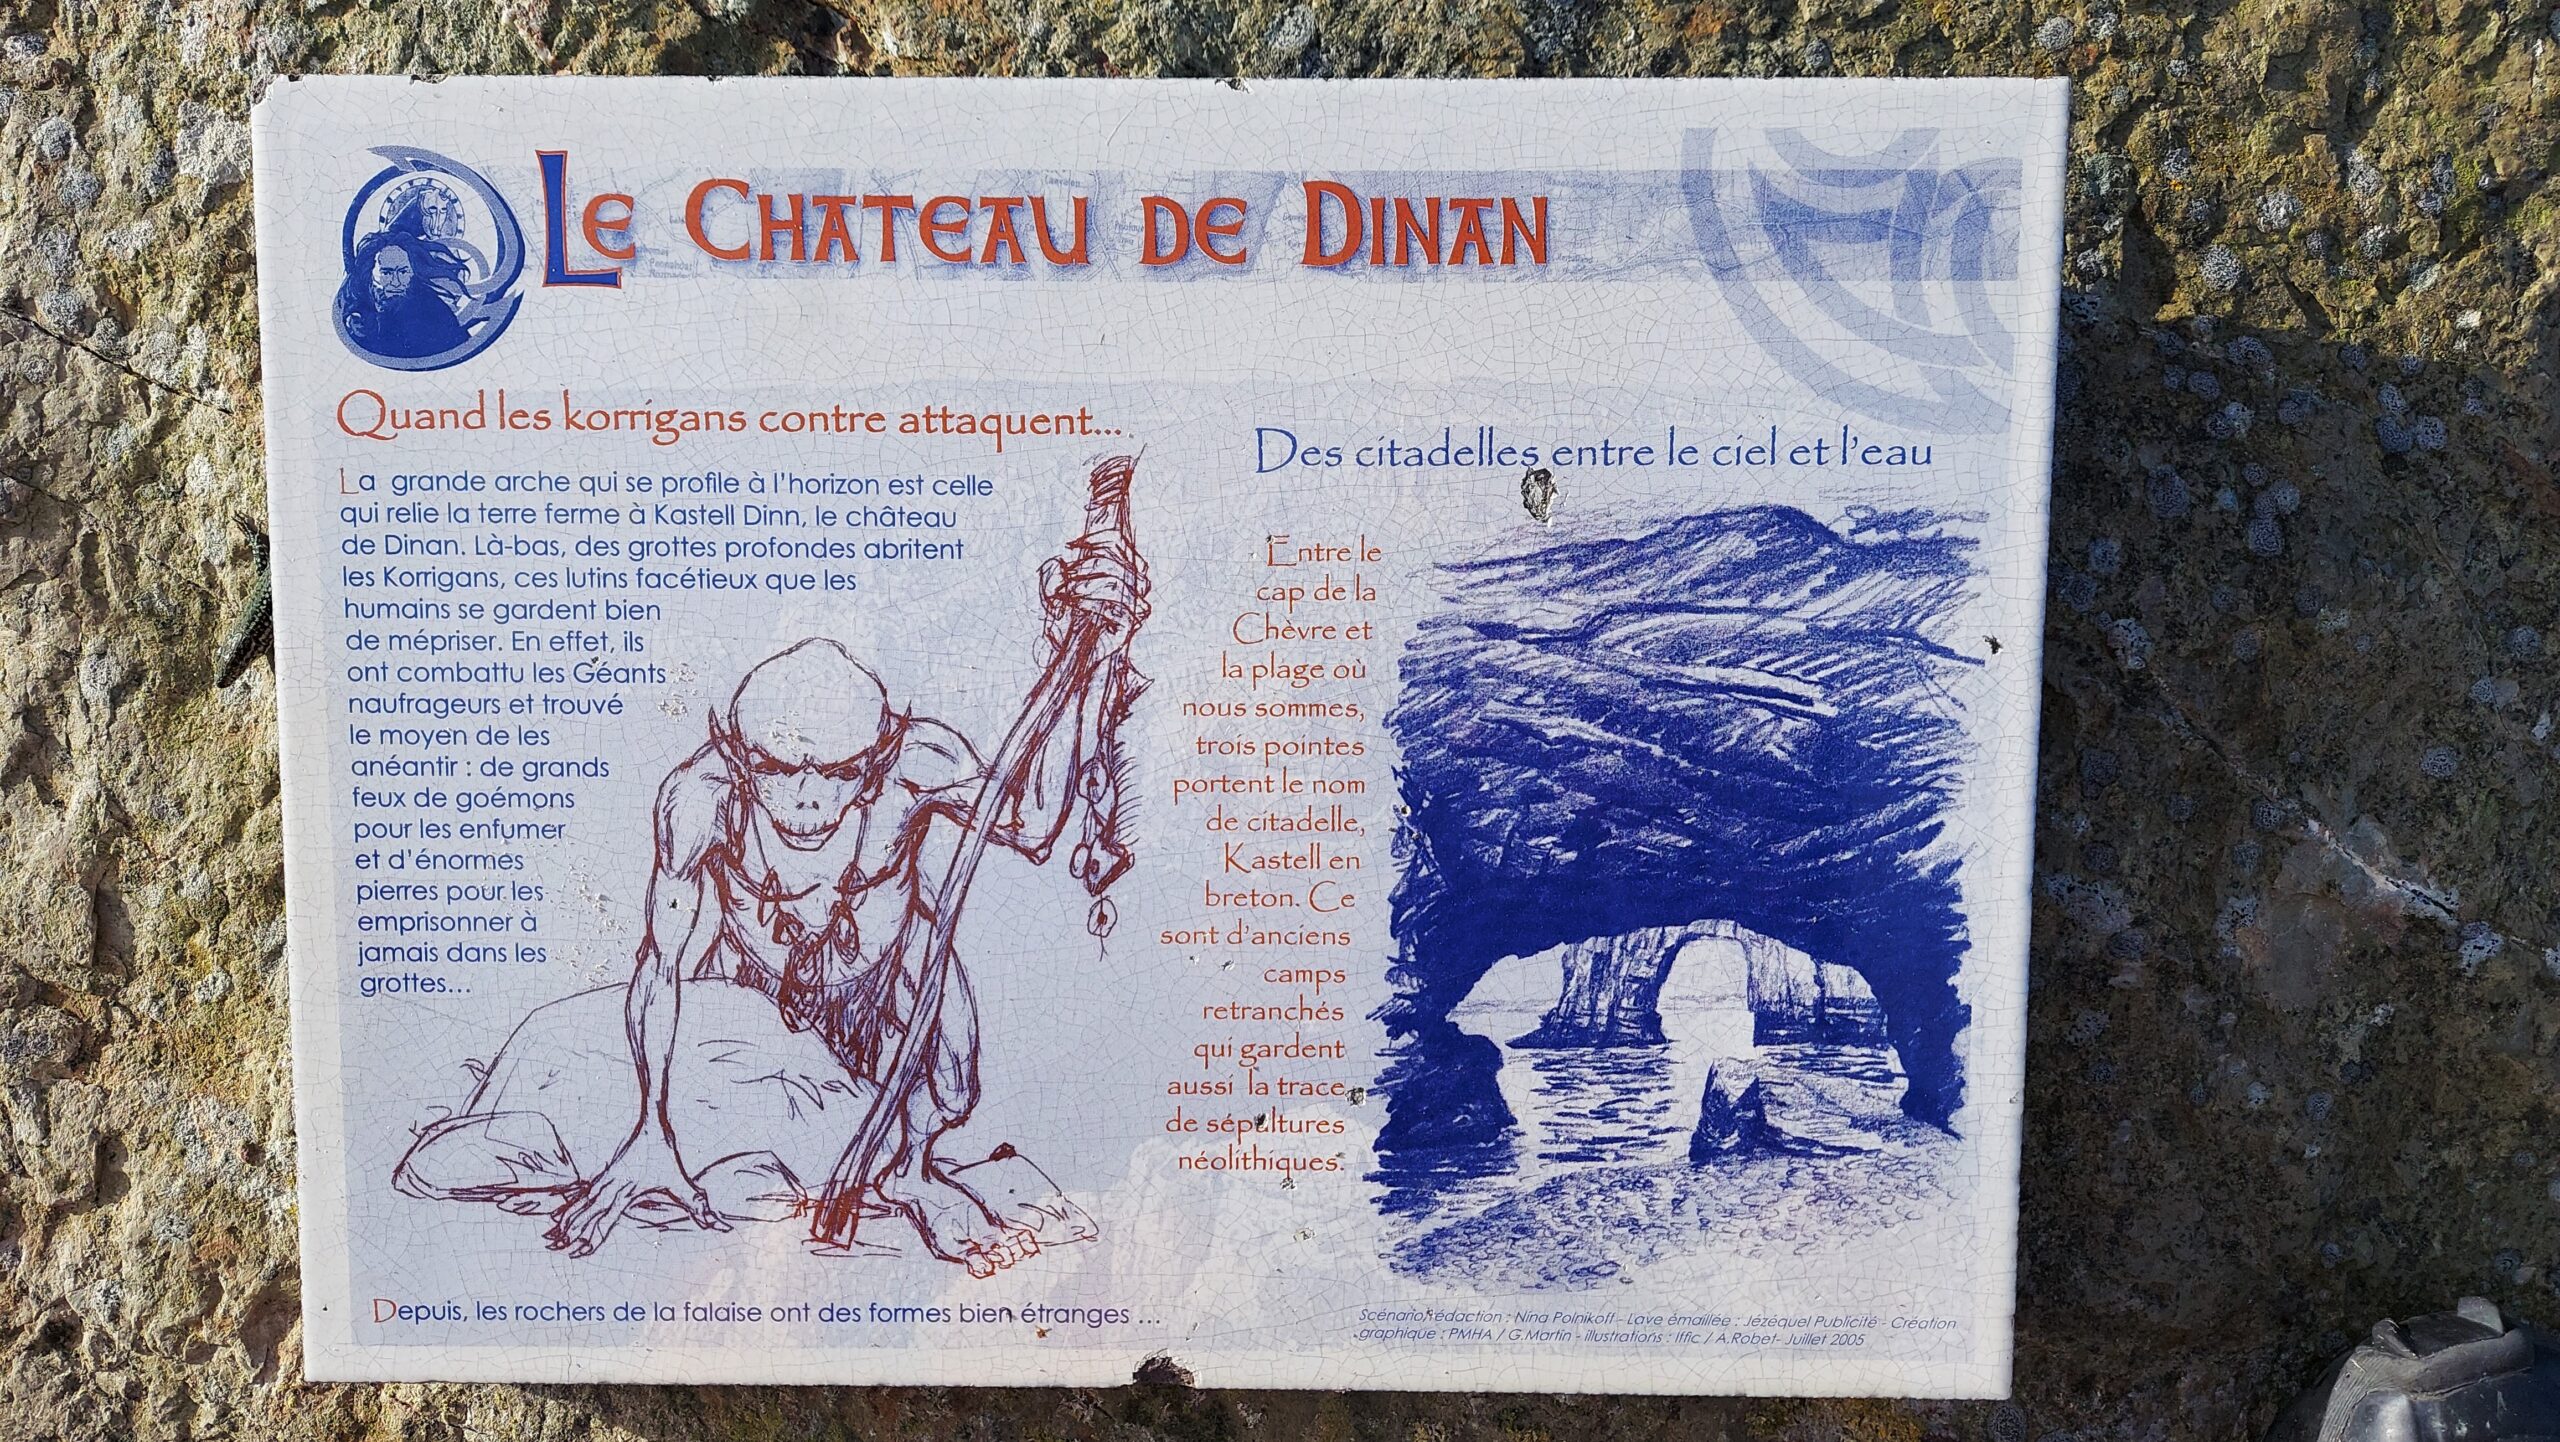 Le Chateau de Dinan
Quand les korrigans contre attaquent...
La grande arche qui se profile à l'horizon est celle
qui relie la terre ferme à Kastell Dinn, le château
de Dinan. Là-bas, des grottes profondes abritent
les Korrigans, ces lutins facétieux que les
humains se gardent bien
de mépriser. En effet, ils
ont combattu les Géants
naufrageurs et trouvé
le moyen de les
anéantir : de grands
feux de goémons
pour les enfumer
et d'énormes
pierres pour les
emprisonner à
jamais dans les
grottes...
Depuis, les rochers de la falaise ont des formes bien étranges ...
Des citadelles entre le ciel et l'eau
Entre le
cap de la
Chèvre et
la plage où
nous sommes,
trois pointes
portent le nom
de citadelle,
Kastell en
breton. Ce
sont d'anciens
camps
retranchés
qui gardent
aussi la trace
de sépultures
néolithiques.
Scénario/rédaction : Nina Polnikoff - Lave émaillée : Jézéquel Publicité - Création
graphique : PMHA / G.Martin - illustrations : Iffic / A.Robet- Juillet 2005